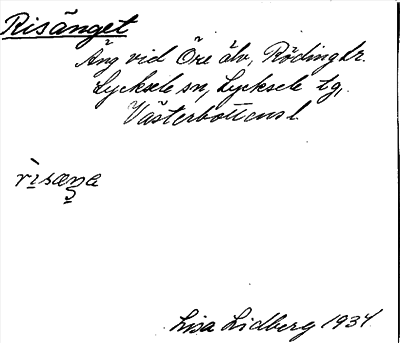 Risänget
Äng vid Öre älv, Rödingtr.
Lycksele sn, Lycksele tg,
Västerbottens l.
Lisa Lidberg 1934.